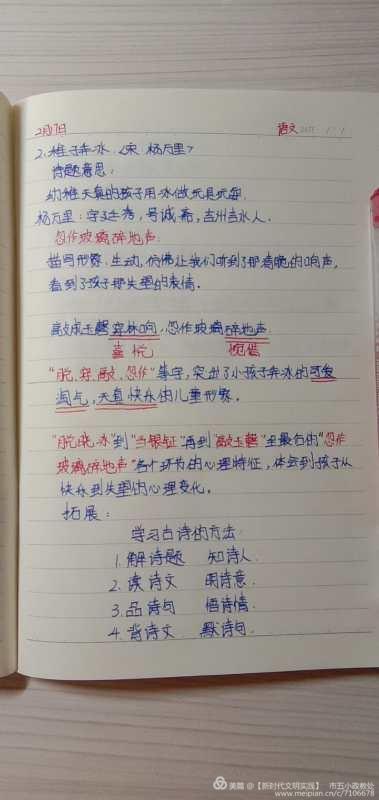 2月17日 语文
2、稚子弄冰〈宋 杨万里〉
诗题意思：
幼稚天真的孩子用冰做玩具玩耍
杨万里：字廷秀，号诚斋，吉州吉水人。
忽作玻璃碎地声：
描写形象、生动，仿佛让我们听到了那清脆的响声，
看到了孩子那失望的表情。
敲成玉磬穿林响，忽作玻璃碎地声
喜悦 惋惜
"脱、穿、敲、忽作"等字，突出了小孩子弄冰的可爱
淘气，天真快乐的儿童形象。
"脱晓冰"到"当银钲"再到"敲玉磬"至最后的"忽作
玻璃碎地声"各个环节的心理特征，体会到孩子从
快乐到失望的心理变化。
拓展：
学习古诗的方法：
1.解诗题 知诗人.
2.读诗文 明诗意.
3.品诗句 悟诗情.
4.背诗文 默诗句.
美篇 @【新时代文明实践】 市五小政教处
www.meipian.cn/c/7106678